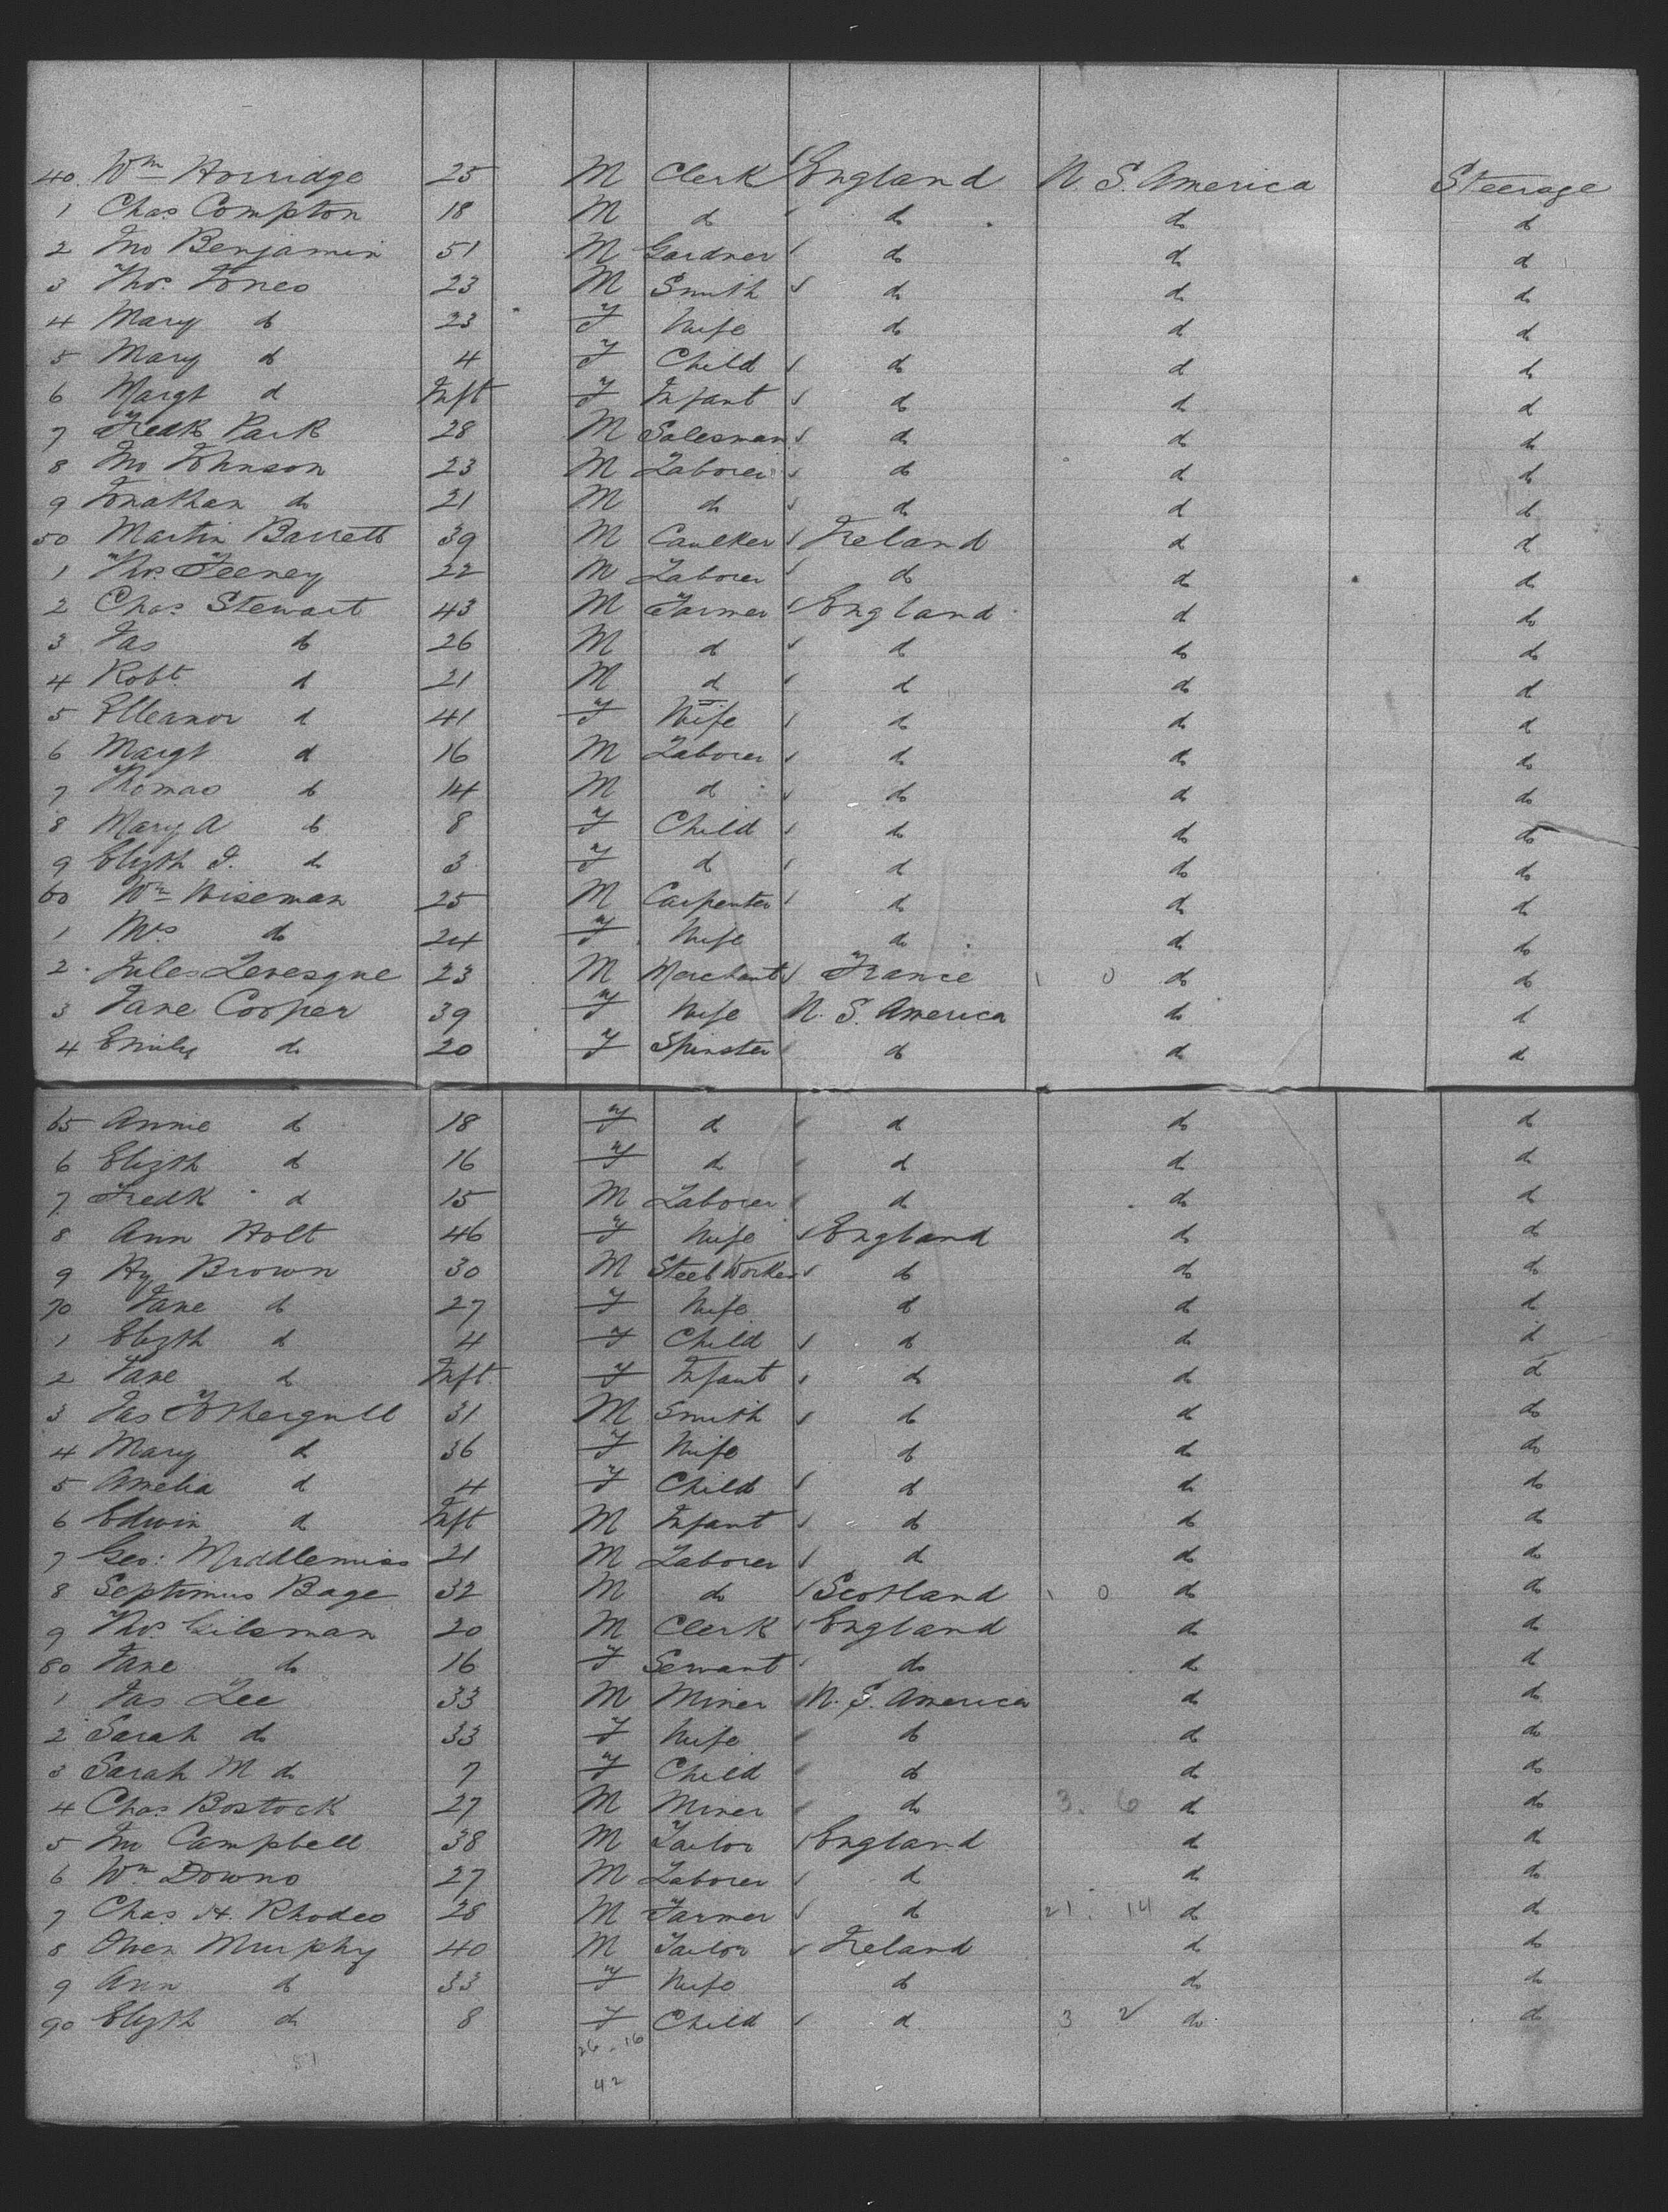 40. Wm Horridge 25 M Clerk England N. S. America Steerage
1 Chas Compton 18 M do do do do
2 Jno Benjamin 51 M Gardner do do do
3 Thos. Jones 23 M Smith do do do
4 Mary do 23 F Wife do do do
5 Mary do 4 F Child do do do
6 Margt do Inft F Infant do do do
7 Fredk Park 28 M Salesman do do do
8 Jno Johnson 23 M Laborer do do do
9 Jonathan do 21 M do do do do
50 Martin Barrett 39 M Caulker Ireland do do
1 Thos. Feeney 22 M Laborer do do do
2 Chas. Stewart 43 M Farmer England do do
3 Jas do 26 M do do do do
4 Robt. do 21 M do do do do
5 Elleanor do 41 F Wife do do do
6 Margt do 16 M Laborer do do do
7 Thomas do 14 M do do do do
8 Mary A do 8 F Child do do do
9 Elizth J. do 3 F do do do do
60 Wm Wiseman 25 M Carpenter do do do
1 Mrs do 24 F Wife do do do
2 Jules Levesque 23 M Merchant France 1 0 do do
3 Jane Cooper 39 F Wife N. S. America do do
4 Emily do 20 F Spinster do do do
65 Annie do 18 F do do do do
6 Elizth do 16 F do do do do
7 Fredk do 15 M Laborer do do do
8 Ann Holt 46 F Wife England do do
9 Hy Brown 30 M Steel Worker do do do
70 Jane do 27 F Wife do do do
1 Elizth do 4 F Child do do do
2 Jane do Inft F Infant do do do
3 Jas Fothergull 31 M Smith do do do
4 Mary do 36 F Wife do do do
5 Amelia do 4 F Child do do do
6 Edwin do Inft M Infant do do do
7 Geo: Middlemiss 21 M Laborer do do do
8 Septimus Bage 32 M do Scotland 1 0 do do
9 Thos. Gilsman 20 M Clerk England do do
80 Jane do 16 F Servant do do do
1 Jas Lee 33 M Miner N. S. America do do
2 Sarah do 33 F Wife do do do
3 Sarah M do 7 F Child do do do
4 Chas. Bostock 27 M Miner do 3. 6 do do
5 Jno Campbell 38 M Tailor England do do
6 Wm Downs 27 M Laborer do do do
7 Chas. H. Rhodes 28 M Farmer do 21. 14 do do
8 Owen Murphy 40 M Tailor Ireland do do
9 Ann do 33 F Wife do do do
90 Elizth do 8 F Child do 3 2 do do
51 26.16
42